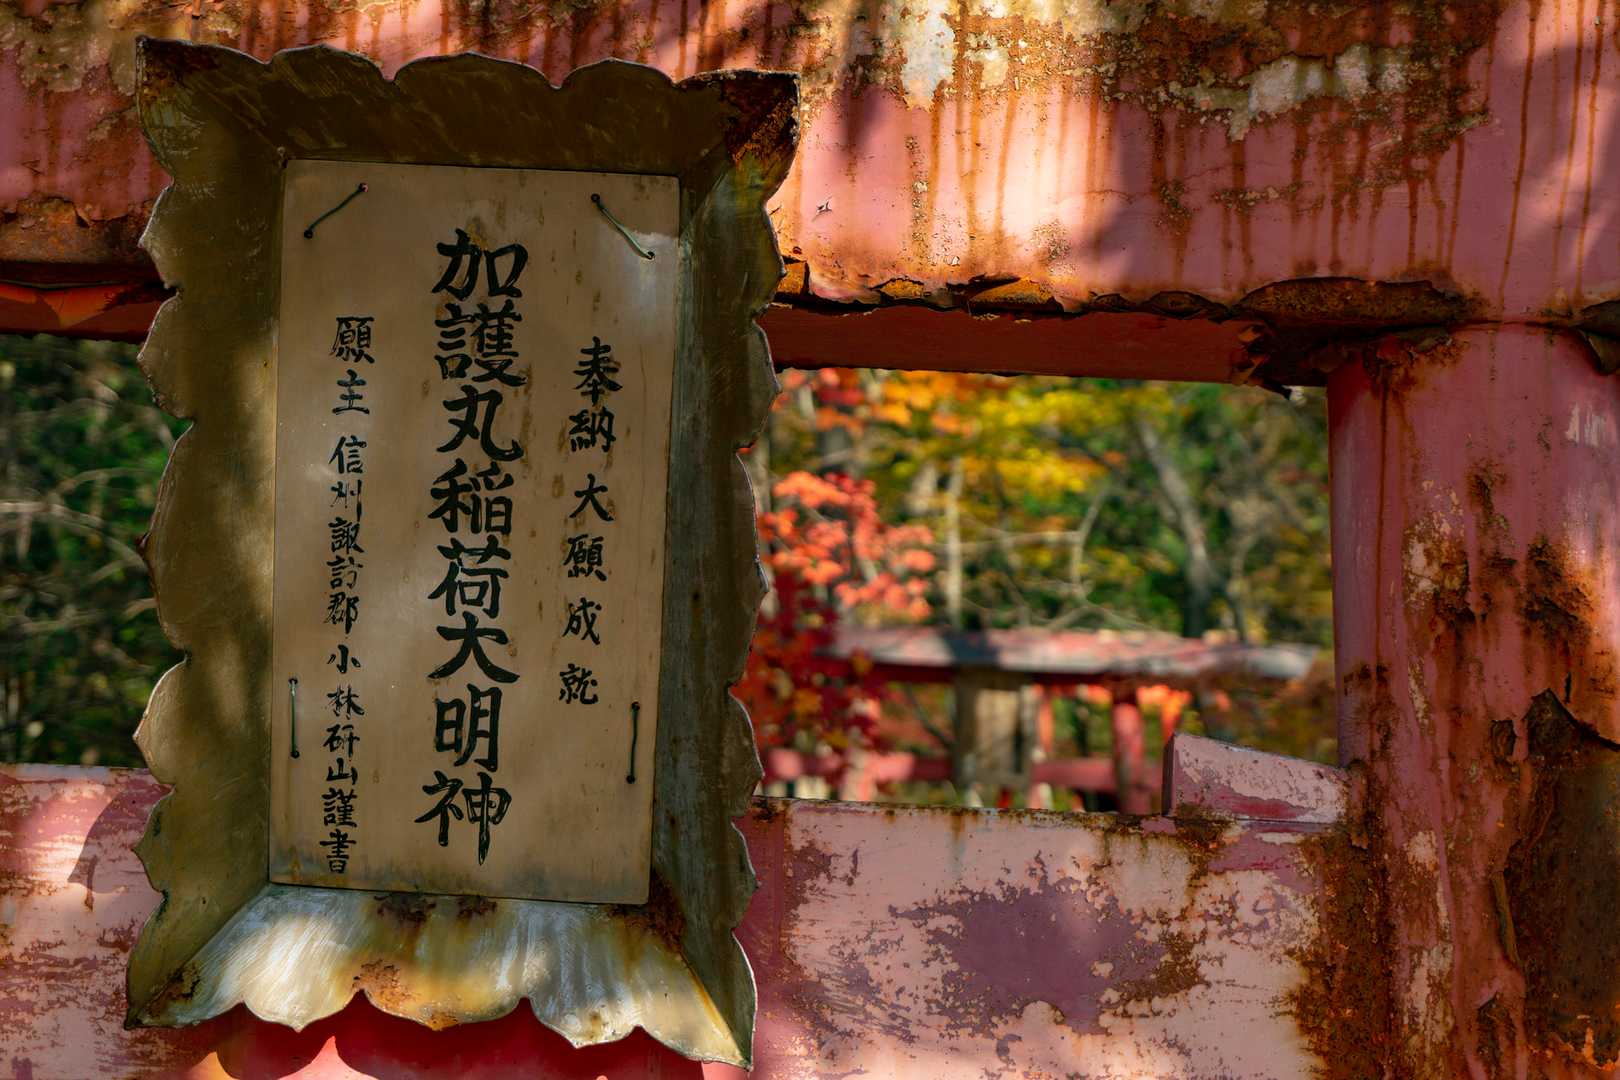 奉納大願成就
加護丸稲荷大明神
願主 信州諏訪郡 小林研山謹書